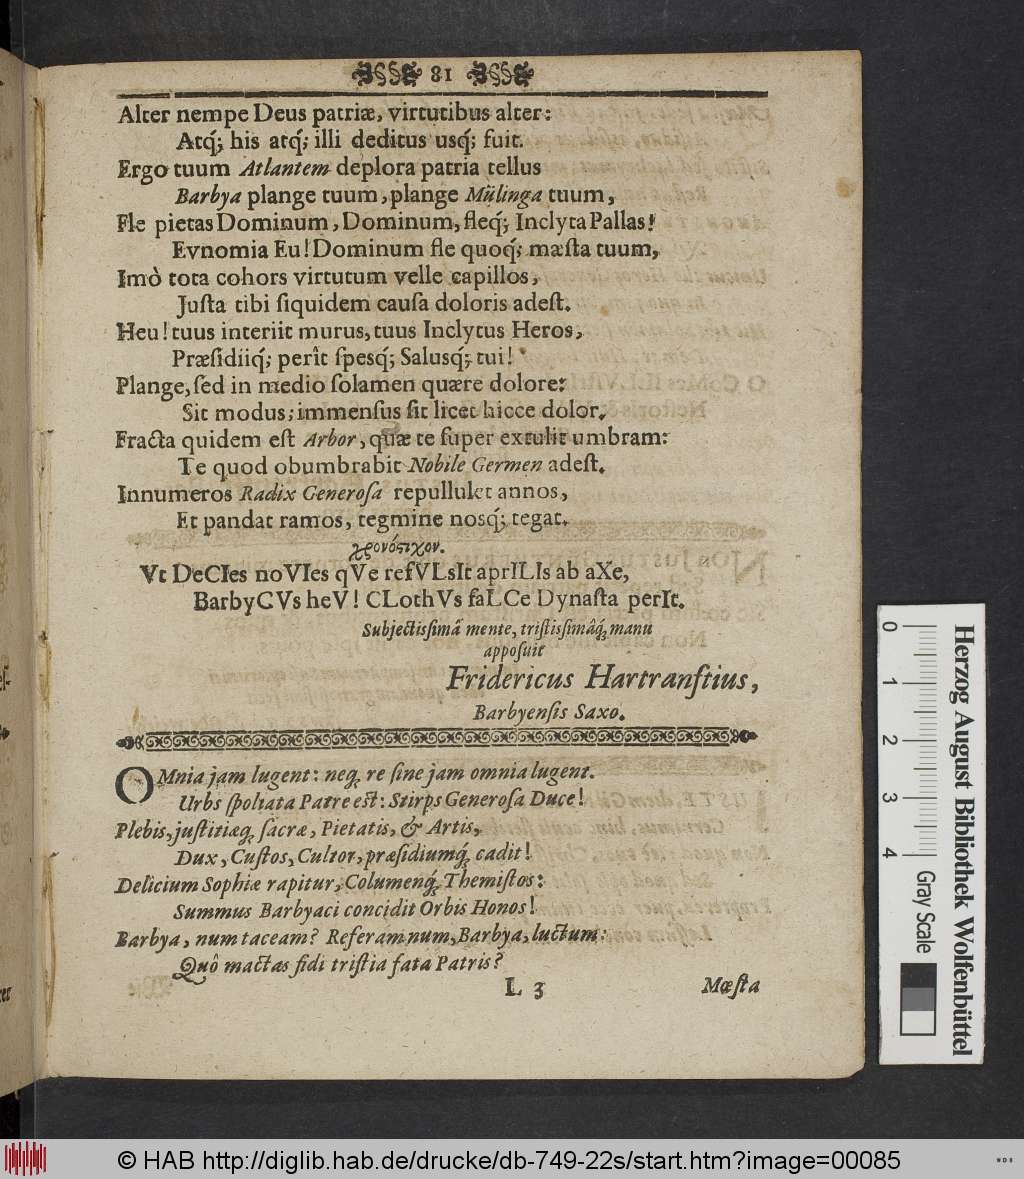 81
Alter nempe Deus patriæ, virtutibus alter:
Atq́; his atq́; illi deditus usq́; fuit.
Ergo tuum Atlantem deplora patria tellus
Barbya plange tuum, plange Mülinga tuum,
Fle pietas Dominum, Dominum, fleq́; Inclyta Pallas!
Evnomia Eu! Dominum fle quoq́; mæſta tuum,
Imò tota cohors virtutum velle capillos,
Juſta tibi ſiquidem cauſa doloris adeſt.
Heu! tuus interiit murus, tuus Inclytus Heros,
Præſidiiq́; perît ſpesq́; Salusq́; tui!
Plange, ſed in medio ſolamen quære dolore:
Sit modus; immenſus ſit licet hicce dolor.
Fracta quidem eſt Arbor, quæ te ſuper extulit umbram:
Te quod obumbrabit Nobile Germen adeſt.
Innumeros Radix Generoſa repullulet annos,
Et pandat ramos, tegmine nosq́; tegat.
χρονόςιχον.
Vt DeCIes noVIes qVe refVLsIt aprILIs ab aXe,
BarbyCVs heV! CLothVs faLCe Dynaſta perIt.
Subjectiſſimâ mente, triſtiſſimâq́; manu
appoſuit
Fridericus Hartranftius,
Barbyenſis Saxo.
OMnia jam lugent: neq; re ſine jam omnia lugent.
Urbs ſpoliata Patre eſt: Stirps Generoſa Duce!
Plebis, juſtitiæq; ſacræ, Pietatis, & Artis,
Dux, Cuſtos, Cultor, præſidiumq́; cadit!
Delicium Sophiæ rapitur, Columenq́; Themiſtos:
Summus Barbyaci concidit Orbis Honos!
Barbya, num taceam? Referam num, Barbya, luctum:
Quô mactas fidi triſtia fata Patris?
L 3
Mœſta
0 1 2 3 4
Gray Scale
Herzog August Bibliothek Wolfenbüttel
© HAB http://diglib.hab.de/drucke/db-749-22s/start.htm?image=00085